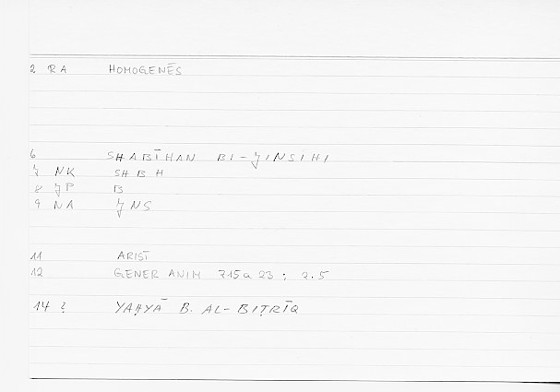 2 RA HOMOGENĒS
6 SHABĪHAN BI-JINSIHI
7 NK SH B H
8 JP B
9 NA JNS
11 ARIST
12 GENER ANIM 715a 23 : 2.5
14 ? YAḤYĀ B. AL-BIṬRĪQ